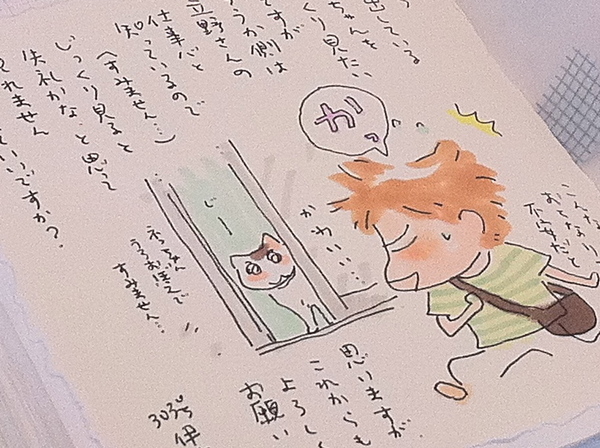 出している
ちゃんを
くり見たい
ですが
うか側は
立野さんの
知っているので
(すみません…)
じっくり見ると
失礼かな と思って
れません
いいですか?
ガッ
こんな
おとなりで
不安だと
かわいい…
じー
ネコちゃん
うろおぼえで
すみません…
思いますが、
これからも
よろしく
お願い
伊